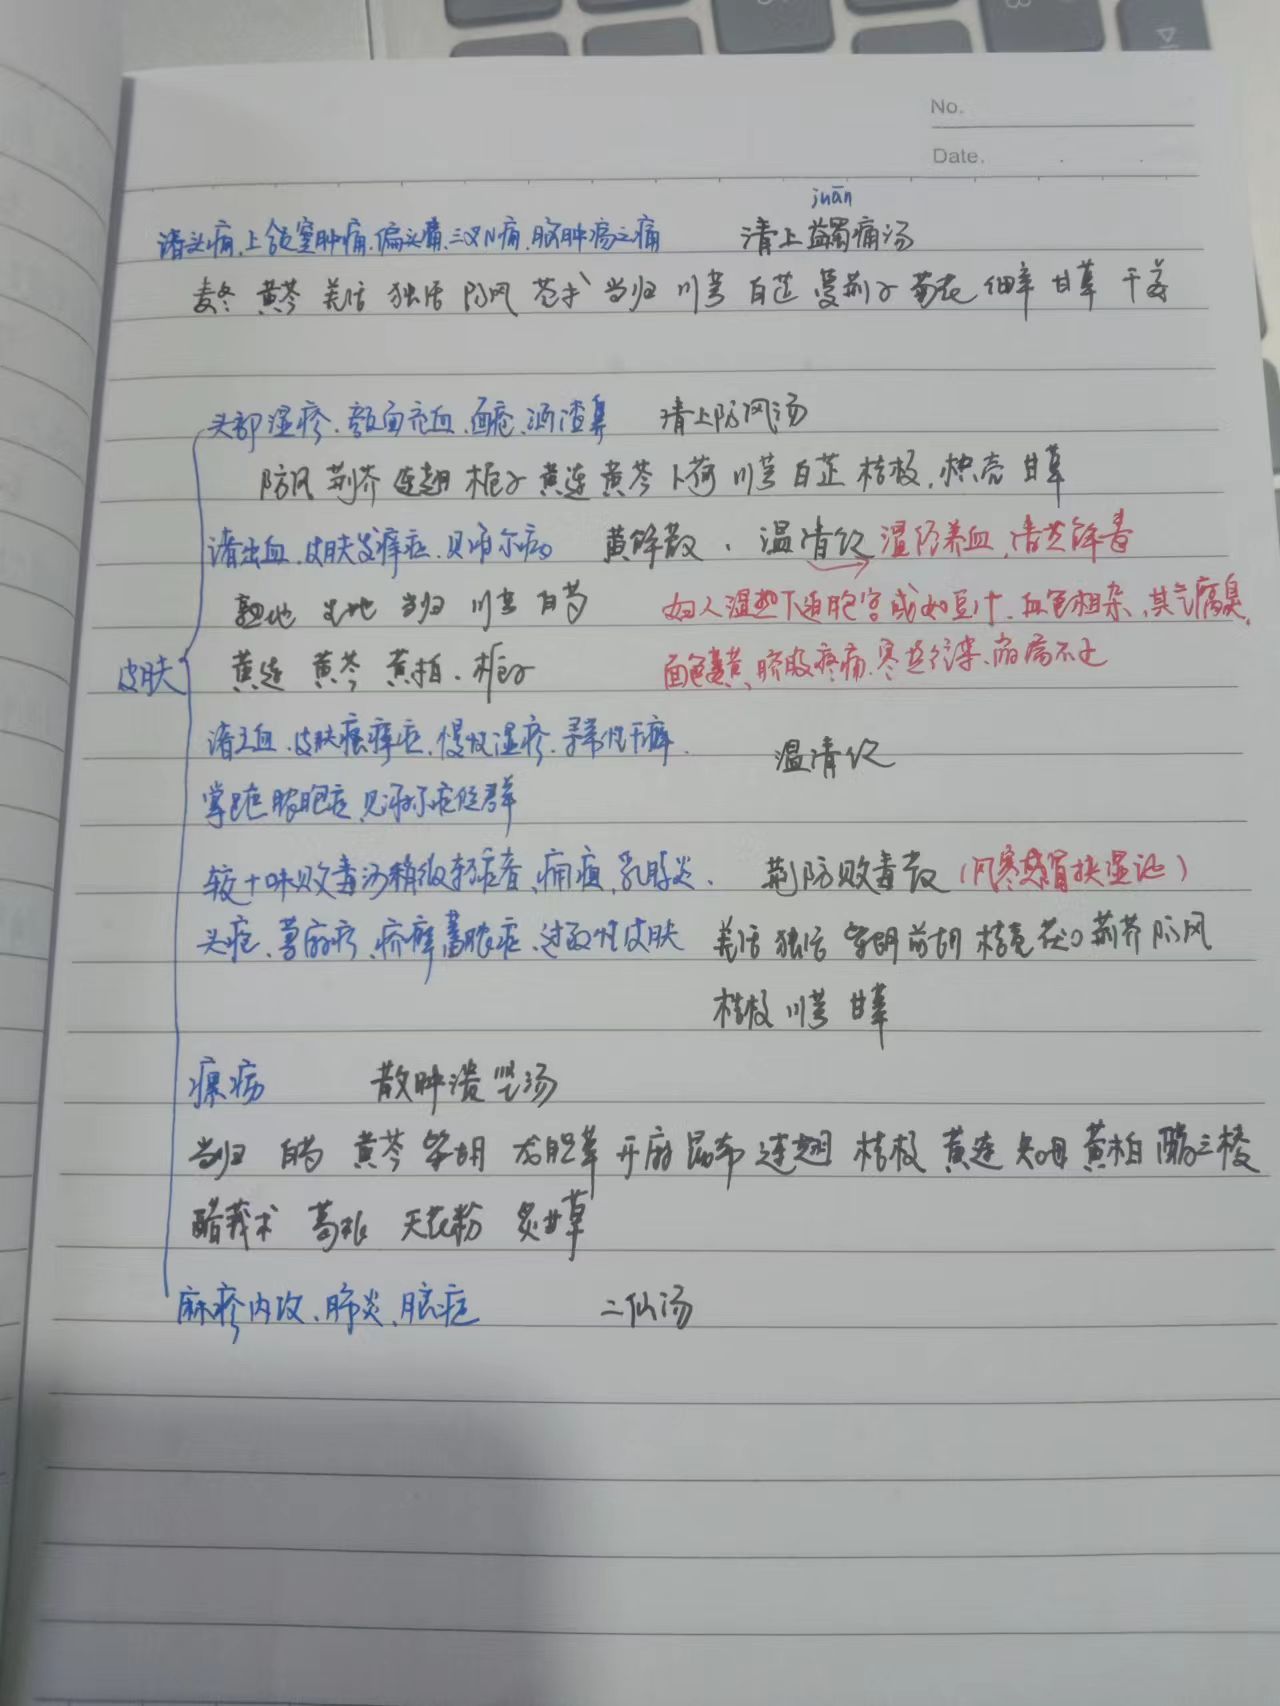 No.
Date.
juān
诸头痛、上颌窦肿痛、偏头痛、三叉N痛、脑肿疡之痛 清上蠲痛汤
麦冬 黄芩 羌活 独活 防风 苍术 当归 川芎 白芷 蔓荆子 菊花 细辛 甘草 干姜
头部湿疹、颜面充血、面疮、酒渣鼻 清上防风汤
防风 荆芥 连翘 栀子 黄连 黄芩 卜荷 川芎 白芷 桔梗、枳壳 甘草
诸出血、皮肤发痒症、贝赫尔病 黄解散、温清饮 温经养血,清热解毒
熟地 生地 当归 川芎 白芍 妇人湿热下迫胞宫或如豆汁、血色相杂,其气腐臭,
皮肤 黄连 黄芩 黄柏、栀子 面色萎黄、脐腹疼痛、寒热往来、崩漏不止
诸出血、皮肤瘙痒症、慢性湿疹、寻常性干癣、 温清饮
掌跖脓胞症、症候群
较十味败毒汤稍微轻症者、痈疽、乳腺炎、 荆防败毒散(风寒感冒挟湿证)
头疮、荨麻疹、疥癣蓄脓症、过敏性皮肤 羌活 独活 柴胡 前胡 枳壳 茯O 荆芥 防风
桔梗 川芎 甘草
瘰疬 散肿溃坚汤
当归 白芍 黄芩 柴胡 龙胆草 升麻 昆布 连翘 桔梗 黄连 知母 黄柏 醋三棱
醋莪术 葛根 天花粉 炙甘草
麻疹内攻、肺炎、脓疮 二仙汤